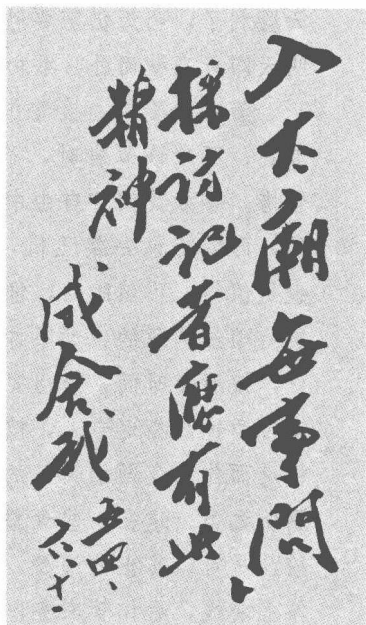 入太廟每事問、
採訪記者應有此
精神
成舍我
五四、
六、十一